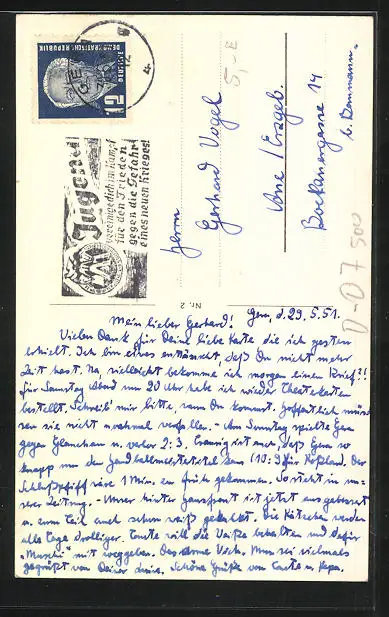 DEUTSCHE
DEMOKRATISCHE REPUBLIK
12
Jugend
vereinige dich im Kampf
für den Frieden
gegen die Gefahr
eines neuen Krieges!
Herrn
Gerhard Vogel
Aue / Erzgeb.
Bockauergasse 14
b.
Nr. 2
5,-
D-D7 500
Gera, d. 29.5.51.
Mein lieber Gerhard!
Vielen Dank für Deine liebe Karte die ich gestern
erhielt. Ich bin etwas enttäuscht, daß Du nicht mehr
Zeit hast. Na, vielleicht bekomme ich morgen einen Brief?!
Für Samstag Abend um 20 Uhr habe ich wieder Theaterkarten
bestellt. Schreib' mir bitte, wann Du kommst. Hoffentlich müs-
sen sie nicht nochmal verfallen. - Am Sonntag spielte Gera
gegen Glauchau u. verlor 2:3. Traurig ist auch, daß Gera so
knapp um den Handballmeistertitel kam (10:9 für Roßlau. Der
Schlußpfiff wäre 1 Min. zu früh gekommen. So steht in un-
serer Zeitung. - Unser hinter ist jetzt ausgebessert
u. zum Teil auch schon weiß gekalkt. Die Kätzchen werden
alle Tage drolliger. Tante will die Weiße behalten und dafür
"Muschi" mit weggeben. Das arme Vieh. Nun sei vielmals
gegrüßt von Deiner Schöne Grüße von Tante u. Papa.